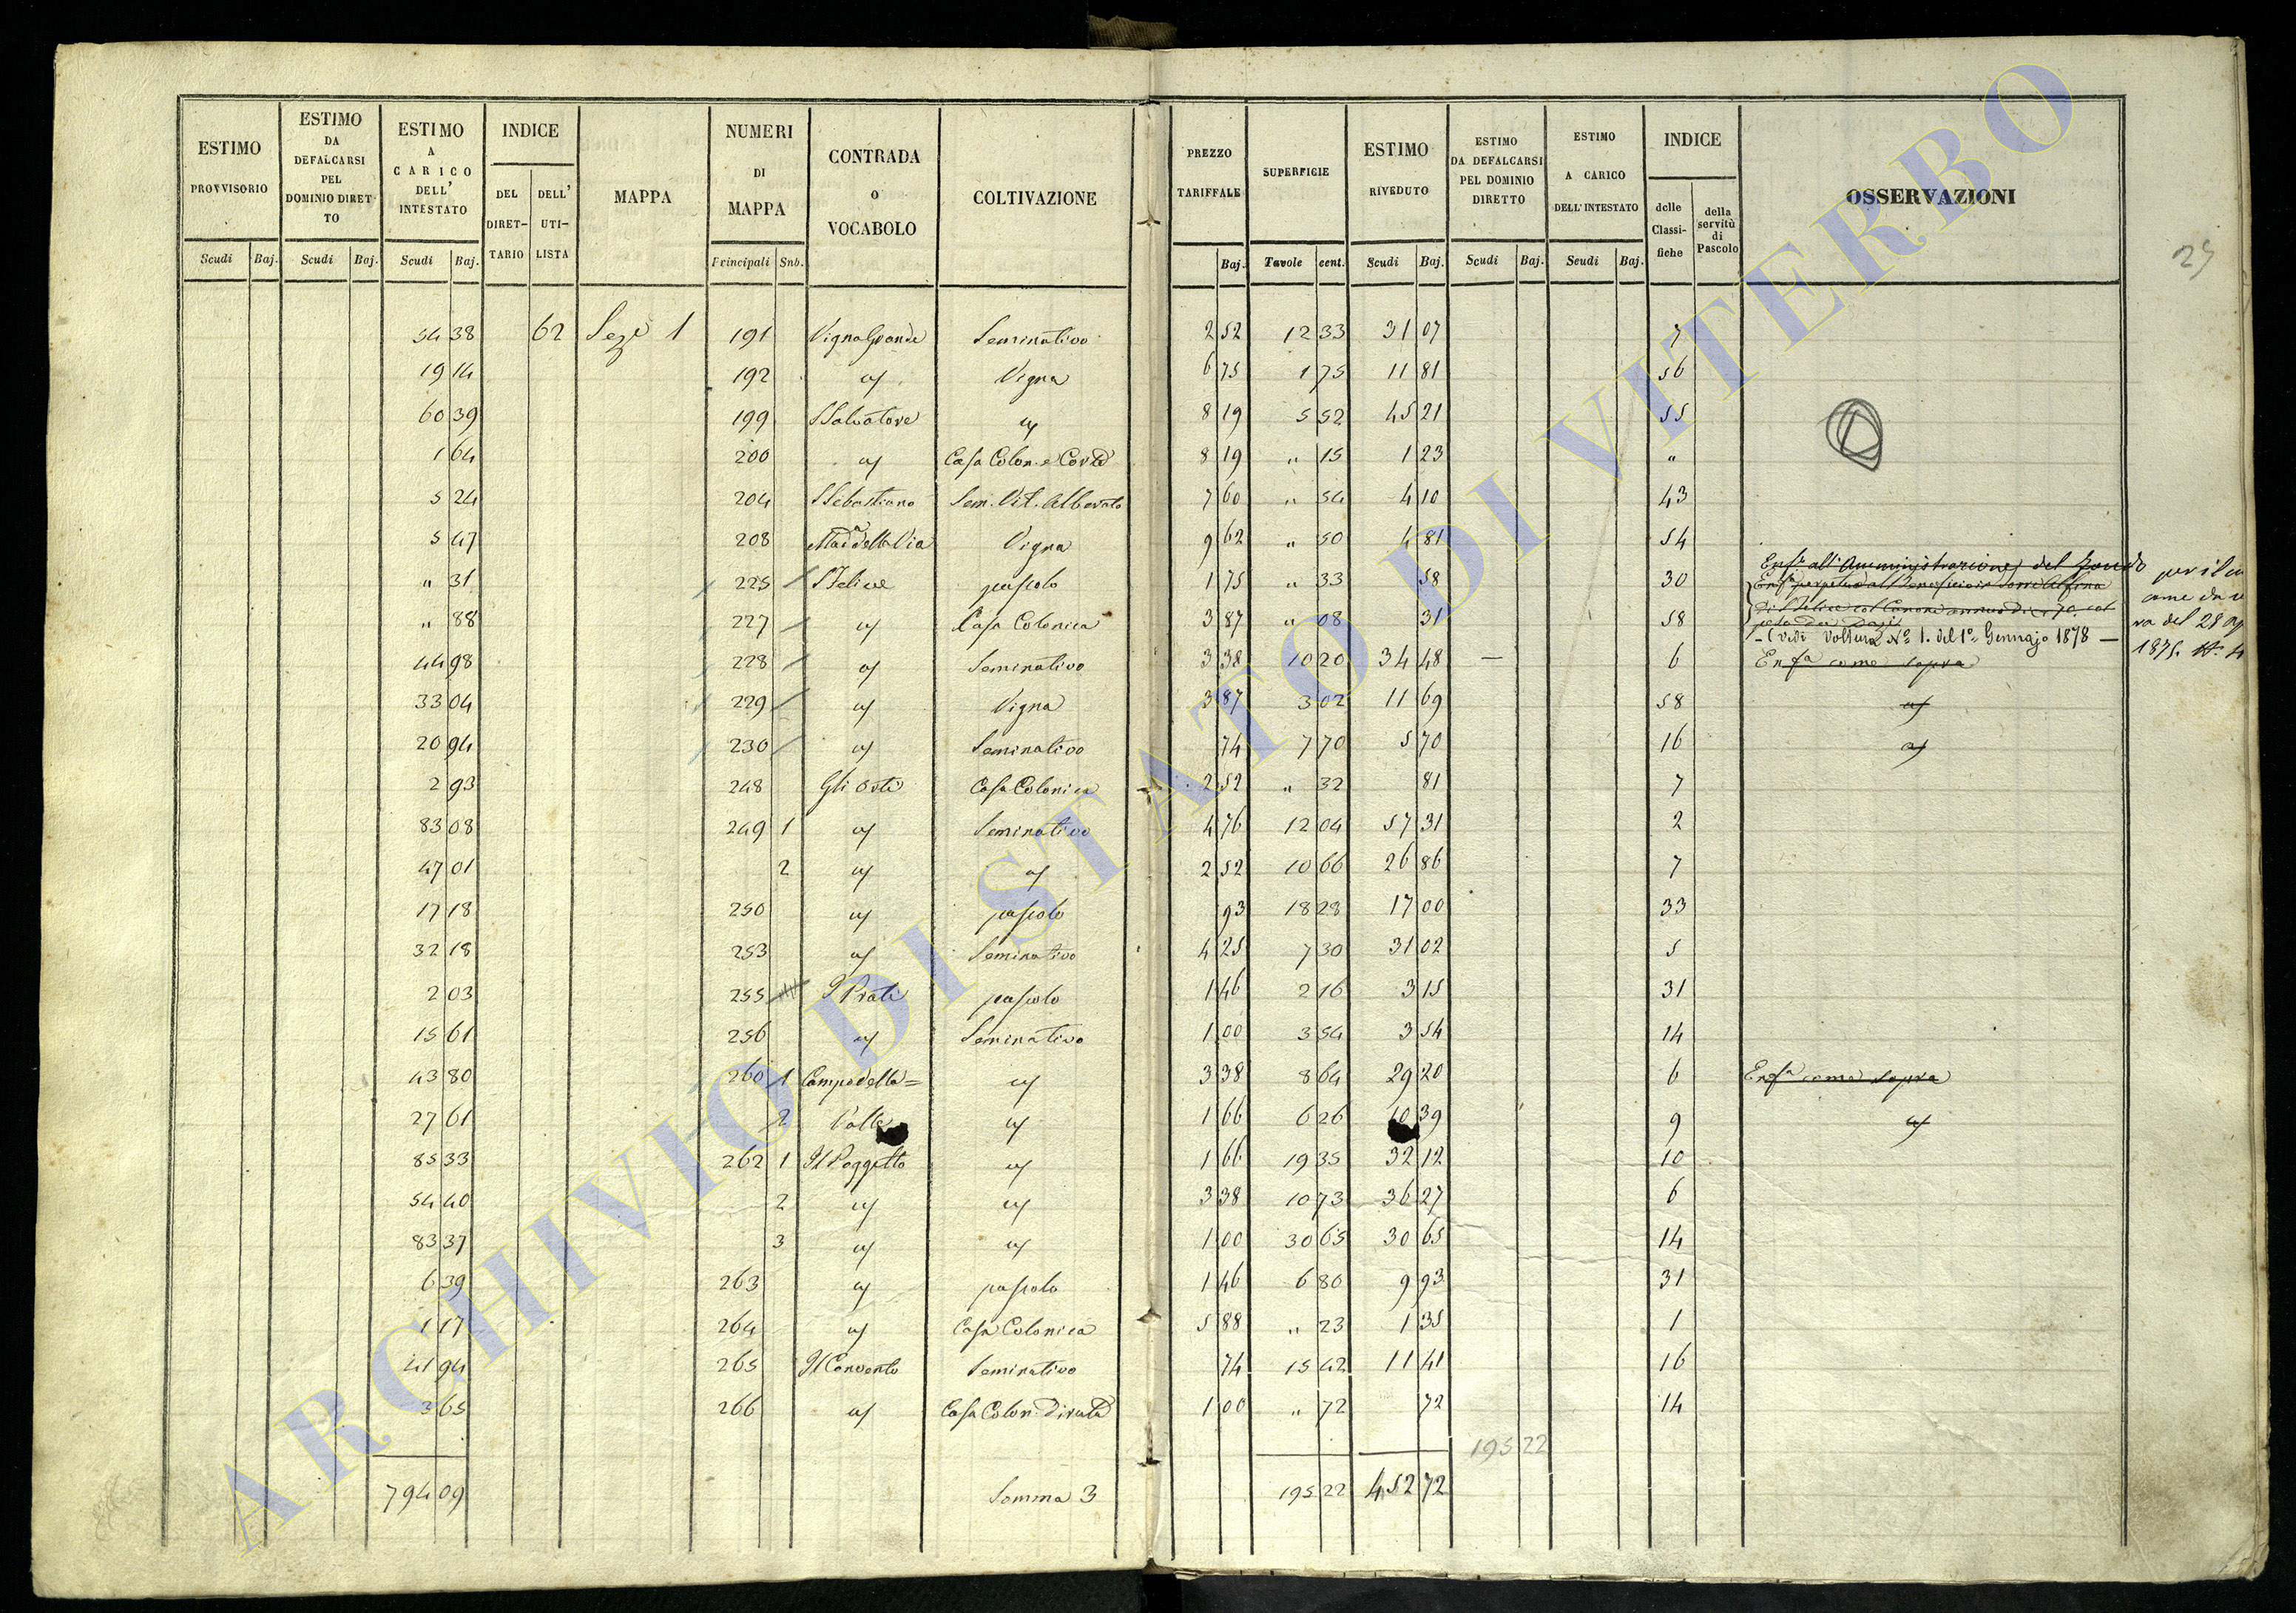 ESTIMO PROVVISORIO Scudi Baj.
ESTIMO DA DEFALCARSI PEL DOMINIO DIRETTO Scudi Baj.
ESTIMO A CARICO DELL' INTESTATO Scudi Baj.
INDICE DEL DIRET-TARIO DELL' UTI-LISTA
MAPPA
NUMERI DI MAPPA Principali Snb.
CONTRADA o VOCABOLO
COLTIVAZIONE
PREZZO TARIFFALE Baj.
SUPERFICIE Tavole cent.
ESTIMO RIVEDUTO Scudi Baj.
ESTIMO DA DEFALCARSI PEL DOMINIO DIRETTO Scudi Baj.
ESTIMO A CARICO DELL'INTESTATO Scudi Baj.
INDICE delle Classi-fiche della servitù di Pascolo
OSSERVAZIONI
25
54 38 62 Sezᵉ 1 191 Vigna Grande Seminativo 2 52 12 33 31 07 7
19 14 192 " Vigna 6 75 1 75 11 81 56
60 39 199 S Salvatore " 8 19 5 52 45 21 55
1 64 200 " Casa Colon. e Corte 8 19 " 15 1 23 "
5 24 204 S Sebastiano Sem. Vit. Alberato 7 60 " 54 4 10 43
5 47 208 Madᵃ della Via Vigna 9 62 " 50 4 81 54
" 31 225 S Felice pascolo 1 75 " 33 58 30
Enfᵃ all'Amministrazione del Fondo
Enfᵃ perpetua al Beneficio
" 88 227 " Casa Colonica 3 87 " 08 31 58
di S Felice col Canone annuo di
(Vedi Voltura Nº 1. del 1º Gennajo 1878 —
va del 28
1875.
44 98 228 " Seminativo 3 38 10 20 34 48 — 6 Enfᵃ come sopra
33 04 229 " Vigna 3 87 3 02 11 69 58 "
20 94 230 " Seminativo 74 7 70 5 70 16 "
2 93 248 Gli Orti Casa Colonica 2 52 " 32 81 7
83 08 249 1 " Seminativo 4 76 12 04 57 31 2
47 01 2 " " 2 52 10 66 26 86 7
17 18 250 " pascolo 93 18 28 17 00 33
32 18 253 " Seminativo 4 25 7 30 31 02 5
2 03 255 I Prati pascolo 1 46 2 16 3 15 31
15 61 256 " Seminativo 1 00 3 54 3 54 14
43 80 260 1 Campo della= " 3 38 8 64 29 20 6 Enfᵃ come sopra
27 61 2 Valle " 1 66 6 26 10 39 9 "
85 33 262 1 Il Poggetto " 1 66 19 35 32 12 10
54 40 2 " " 3 38 10 73 36 27 6
83 37 3 " " 1 00 30 65 30 65 14
6 39 263 " pascolo 1 46 6 80 9 93 31
1 17 264 " Casa Colonica 5 88 " 23 1 35 1
41 94 265 Il Convento Seminativo 74 15 42 11 41 16
3 65 266 " Casa Colon. Diruta 1 00 " 72 72 14
195 22
794 09 Somma 3 195 22 452 72
ARCHIVIO DI STATO DI VITERBO